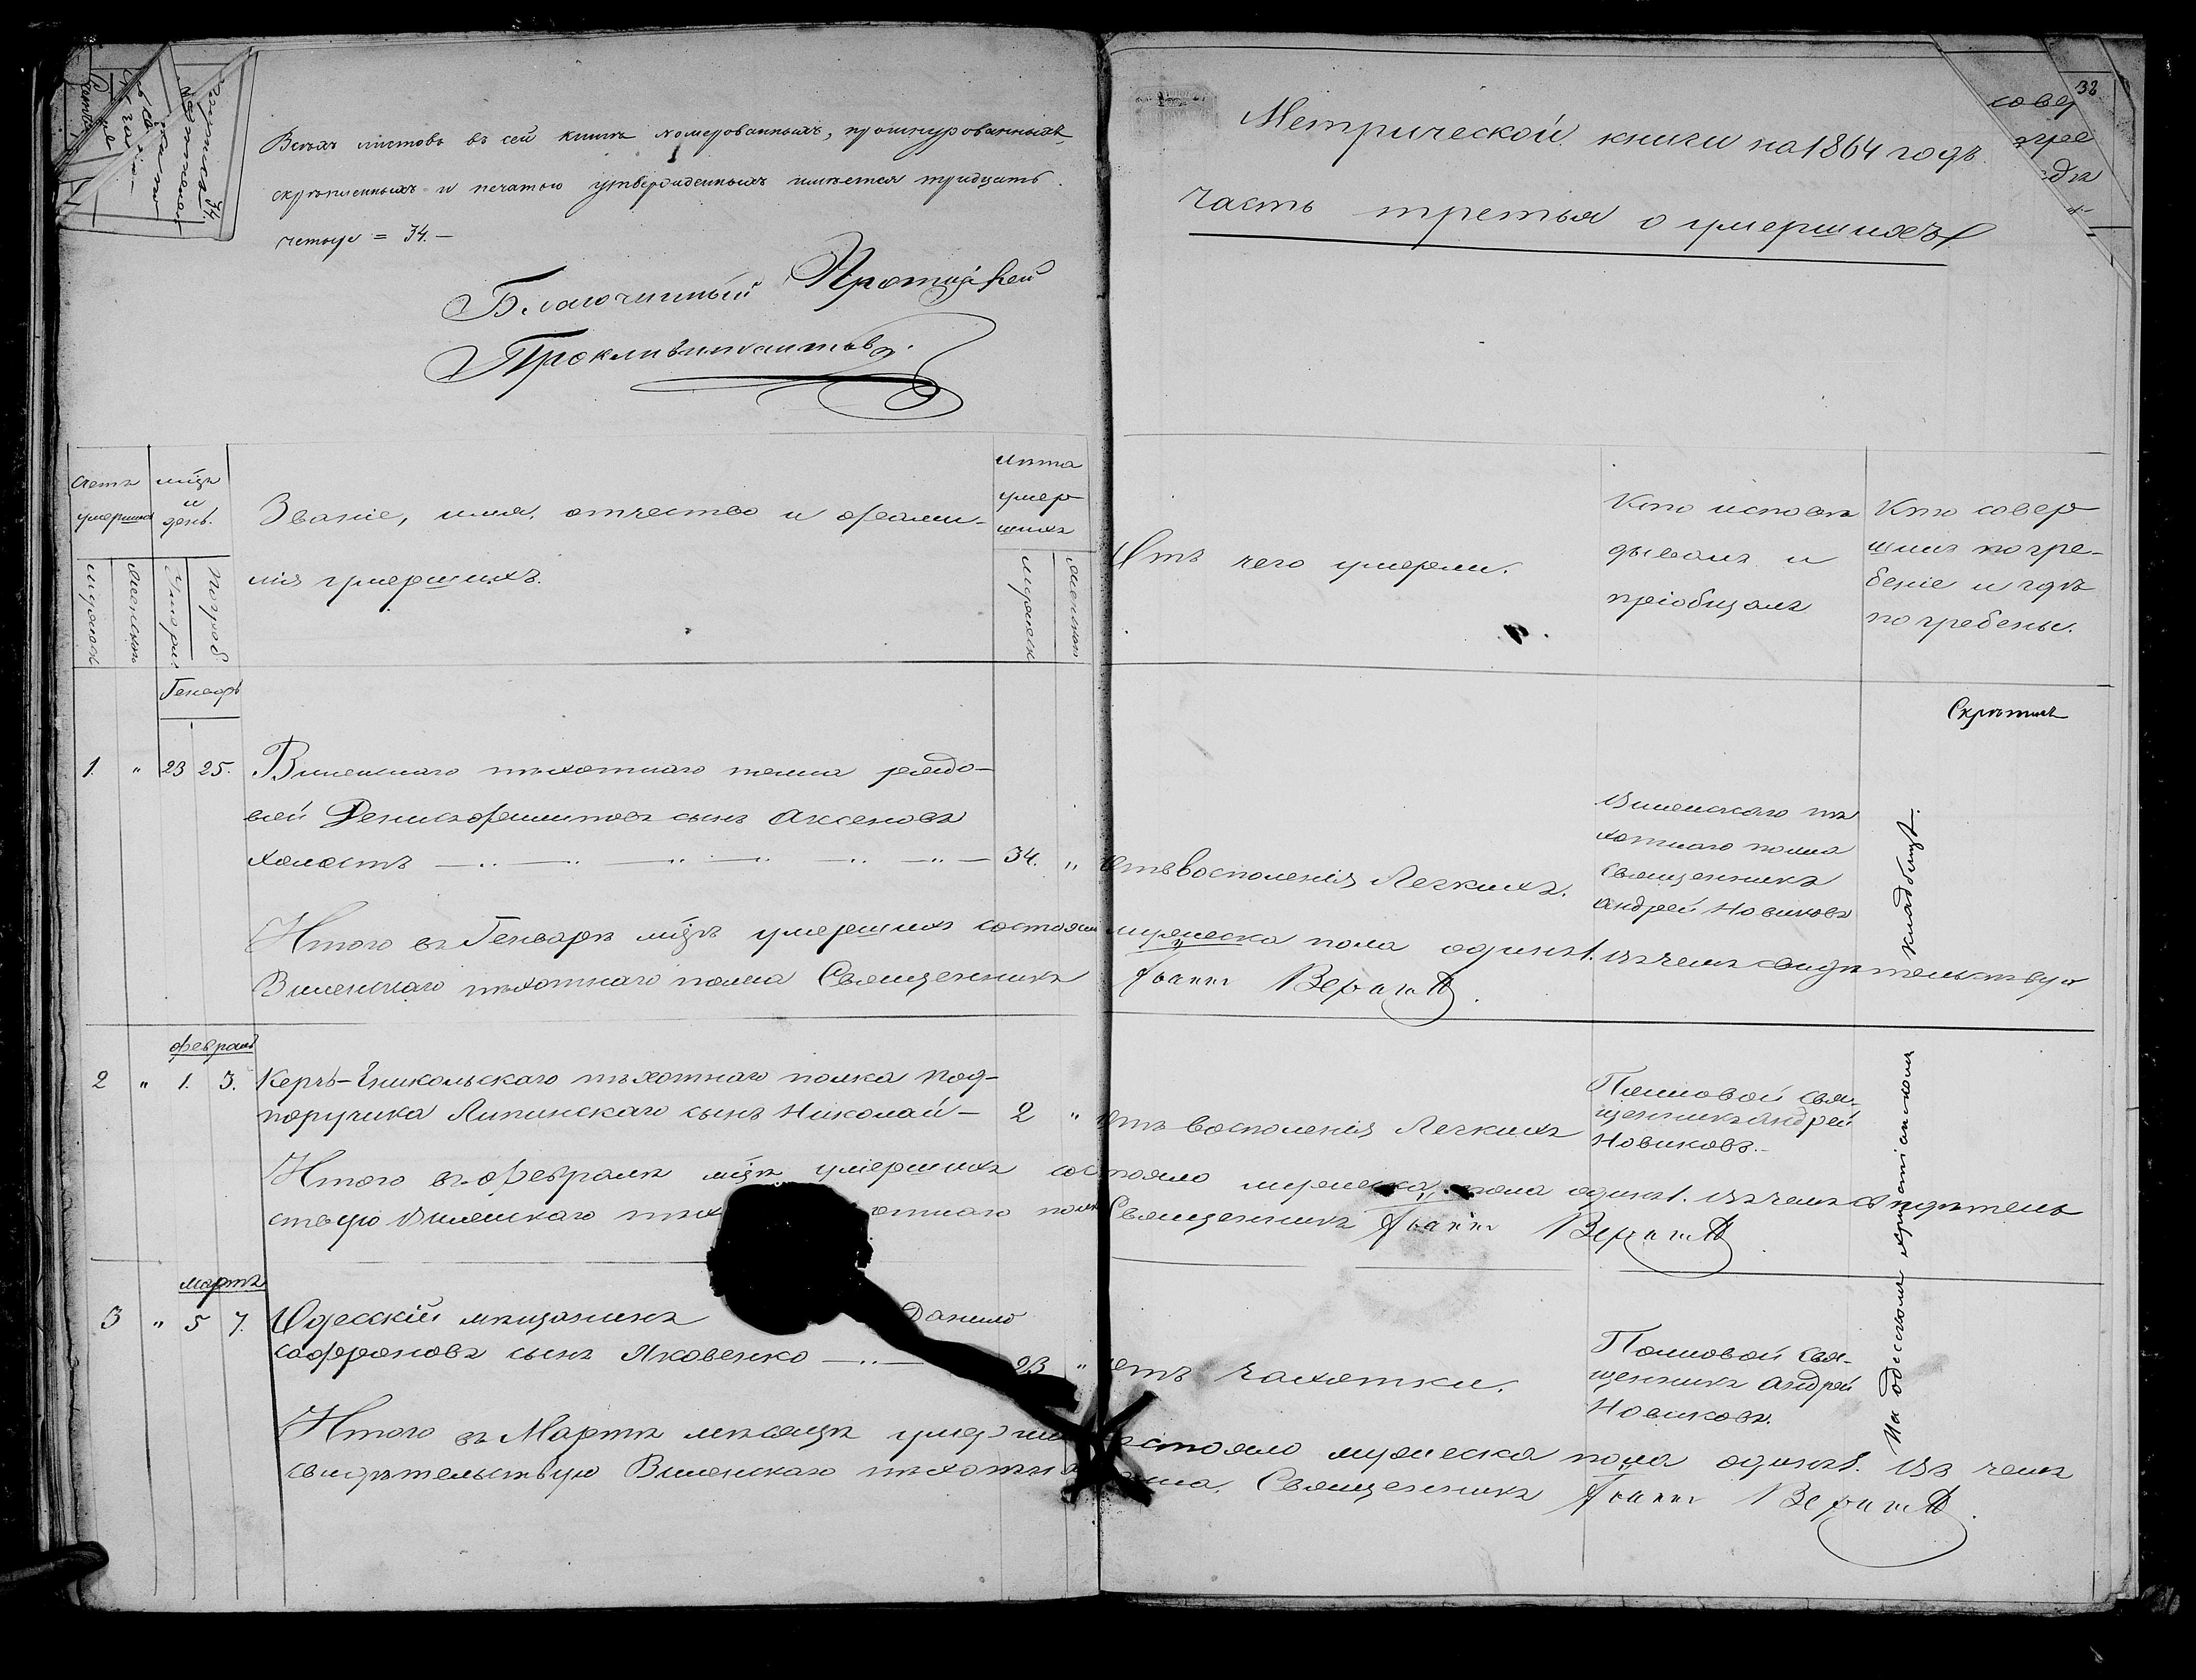 Всѣхъ листовъ въ сей книгѣ номерованныхъ, прошнурованныхъ,
скрѣпленныхъ и печатью утвержденныхъ имѣется тридцать
четыре = 34. —
Благочинный Протоіерей
38
Метрической книги на 1864 годъ.
Часть третья о умершихъ
Счетъ умершихъ
мужеск
женскихъ
мц̃ъ и день.
Умерш.
Погреб
Званіе, имя, отчество и фами-
лія умершихъ.
Лѣта умер шихъ
мужеск
женскихъ
Отъ чего умерли.
Кто исповѣ
дывалъ и
пріобщалъ
Кто совер
шилъ погре-
беніе и гдѣ
погребены.
Генварь
Скрѣпилъ
1. " 23 25. Виленскаго пѣхотнаго полка рядо-
вой Денисъ Филиповъ сынъ Аксеновъ
холостъ 34. " Отъ воспаленія легкихъ.
Виленскаго пѣ
хотнаго полка
Священникъ
Андрей Новиковъ
Итого въ Генварѣ мц̃ѣ умершихъ состояло мужеска пола одинъ 1. въ чемъ свидѣтельствую
Виленскаго пѣхотнаго полка Священникъ Іоаннъ
Февраль
2 " 1. 3. Керчь-Еникольскаго пѣхотнаго полка под-
поручика Липинскаго сынъ Николай — 2 " Отъ воспаленія легкихъ
Полковой Свя-
щенникъ Андрей
Новиковъ.
Итого въ Февралѣ мц̃ѣ умершихъ состояло мужеска пола одинъ 1. въ чемъ свидѣтель
ствую Виленскаго пѣхотнаго полка Священникъ Іоаннъ
Мартъ
3 " 5 7. Одесскій мѣщанинъ Данило
Сафроновъ сынъ Яковенко 23 " Отъ чахотки.
Полковой Свя-
щенникъ Андрей
Новиковъ.
Итого въ Мартѣ мѣсяцѣ умерш состояло мужеска пола одинъ 1. въ чемъ
свидѣтельствую Виленскаго пѣхотн полка. Священникъ Іоаннъ
На одесскомъ христіанскомъ кладбищѣ.